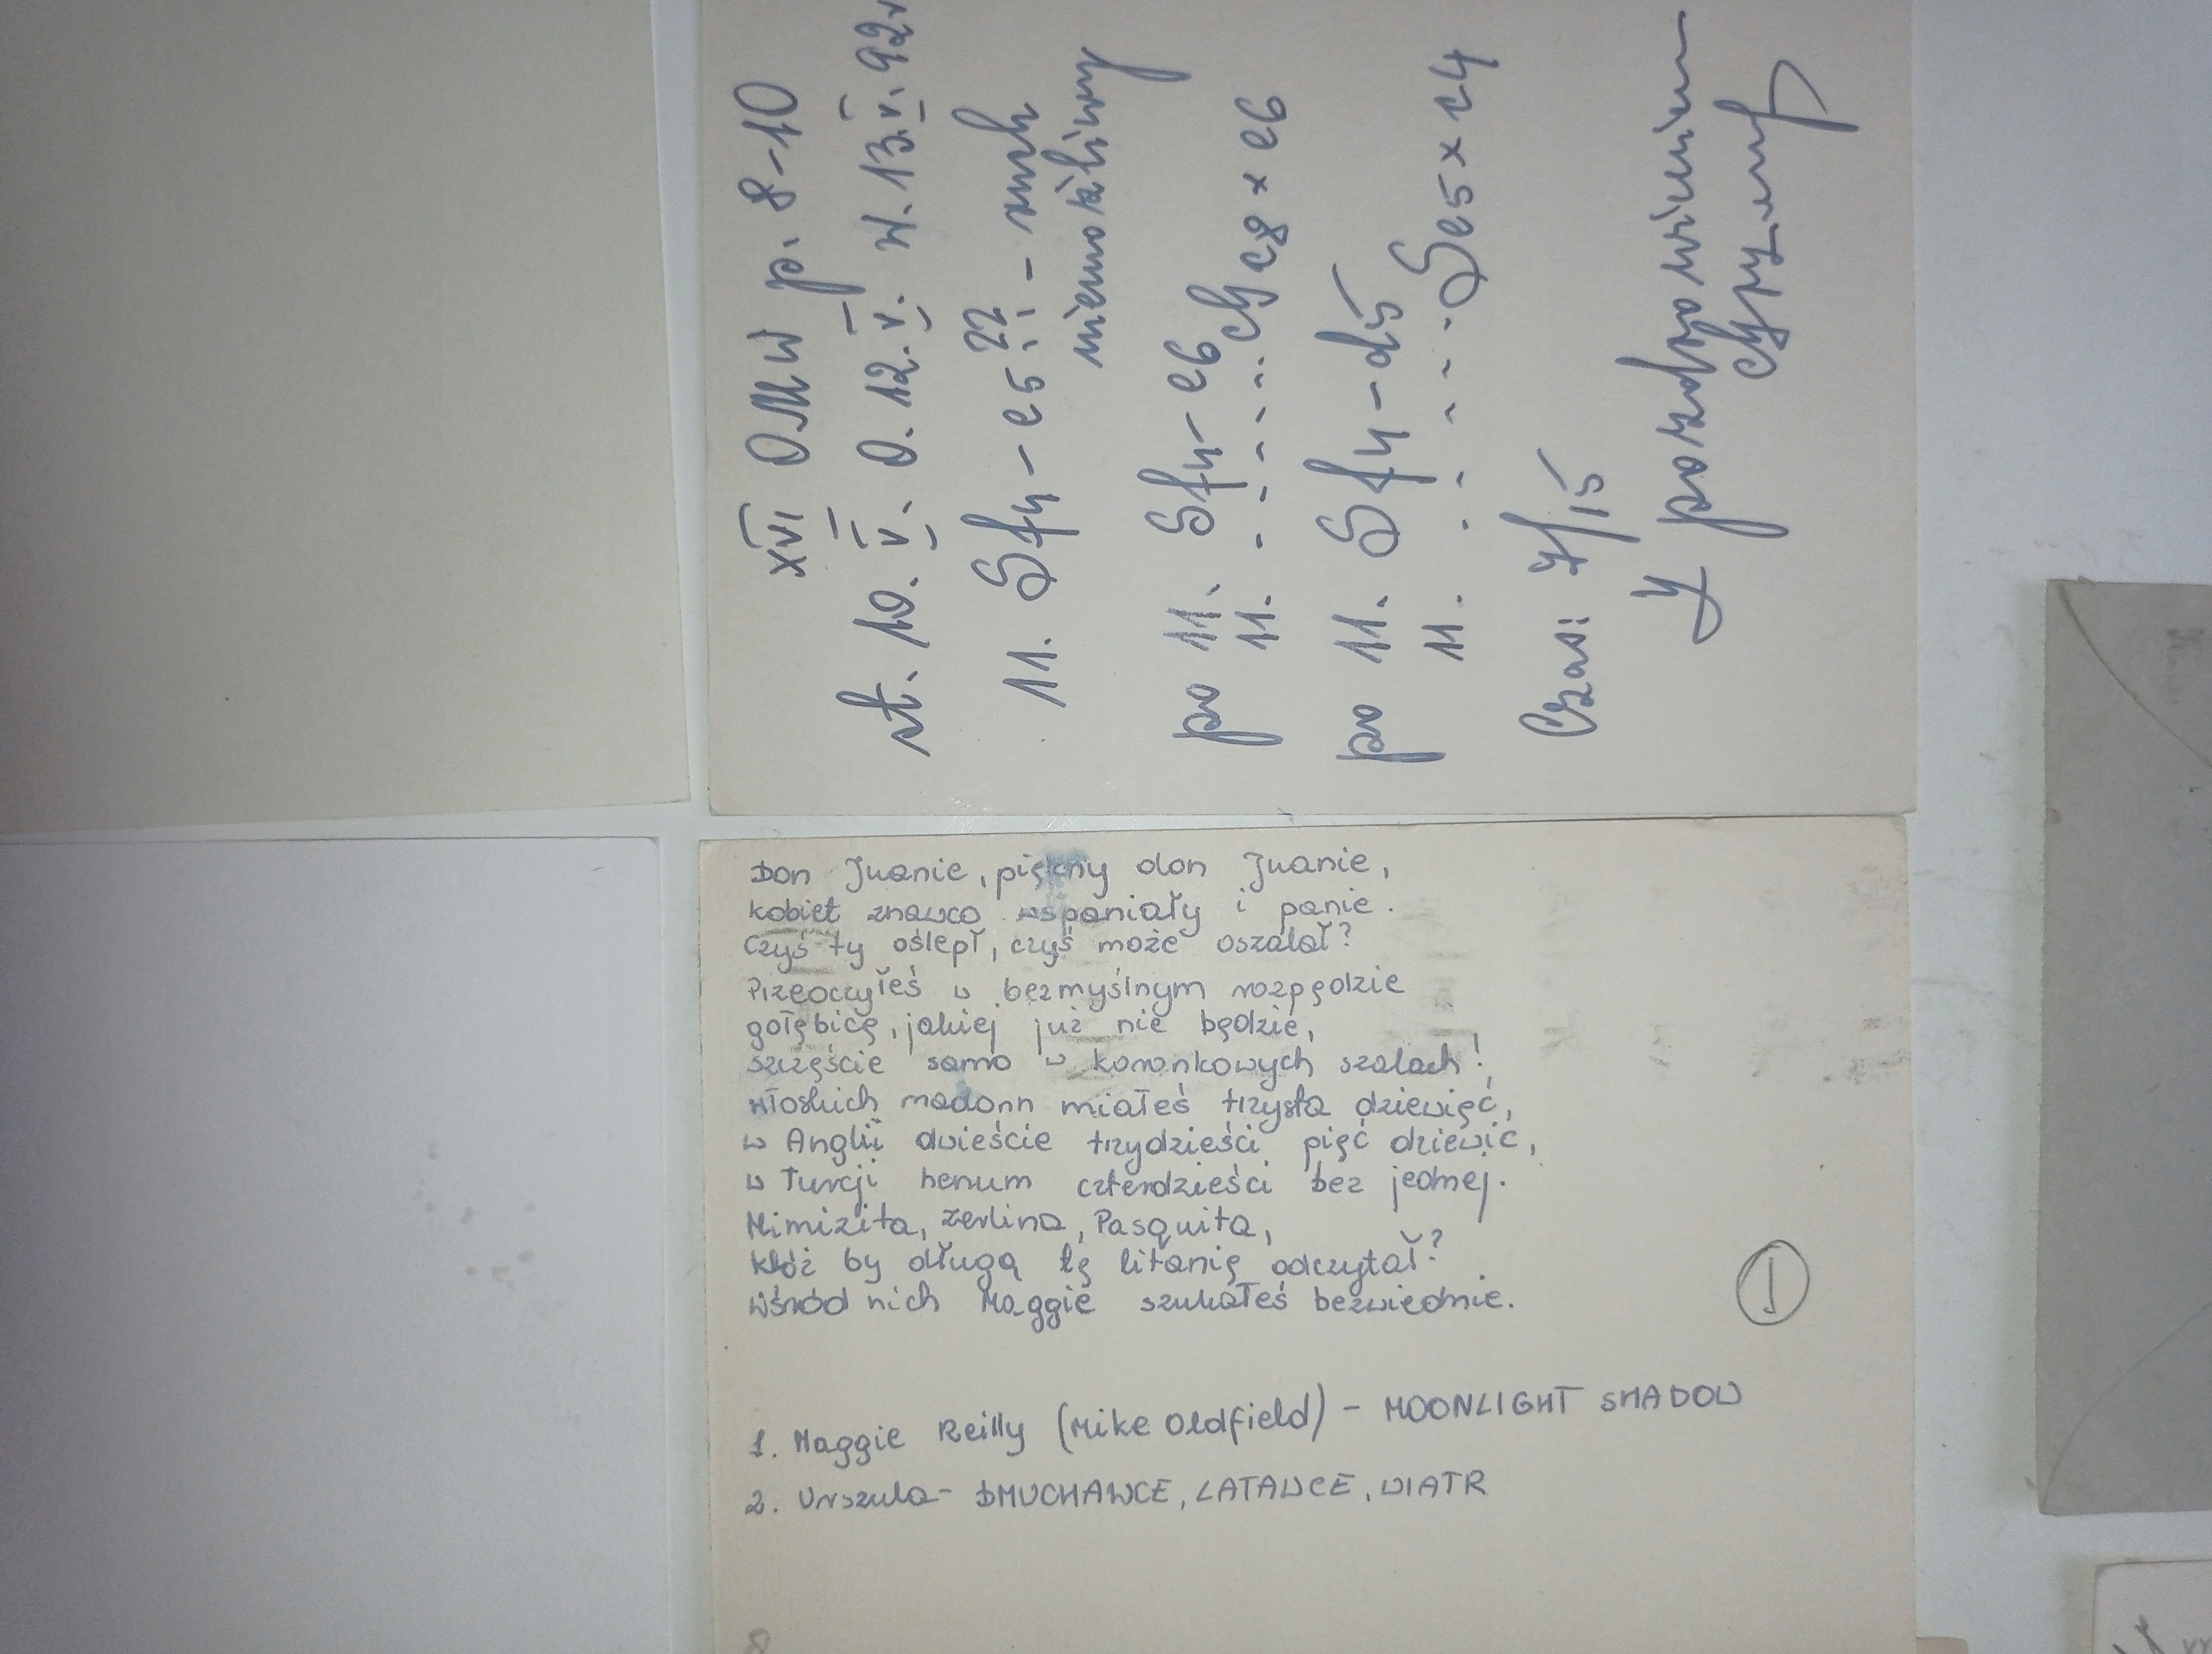 XVI OMW p. 8-10
st. 10. VI. O. 12. VI. W. 13. VI. 92r
11. Sf4 - e5 ?? - ruch
niemożliwy
po 11. Sf4 - e6
11. - - - - - - c8 x e6
po 11. Sf4 - d5
11. - - - - - S e5 x c4
Czas: 7/15
Z pozdrowieniem
Don Juanie, piękny don Juanie,
kobiet znawco wspaniały i panie.
Czyś ty oślepł, czyś może oszalał?
Przeoczyłeś w bezmyślnym rozpędzie
gołębicę, jakiej już nie będzie,
szczęście samo w koronkowych szalach!
Włoskich madonn miałeś trzysta dziewięć,
w Anglii dwieście trzydzieści pięć dziewić,
w Turcji henum czterdzieści bez jednej.
Mimizita, Zerlina, Pasquita,
któż by długą tę litanię odczytał?
Wśród nich Maggie szukałeś bezwiednie.
I
1. Maggie Reilly (Mike Oldfield) - MOONLIGHT SHADOW
2. Urszula - DMUCHAWCE, LATAWCE, WIATR